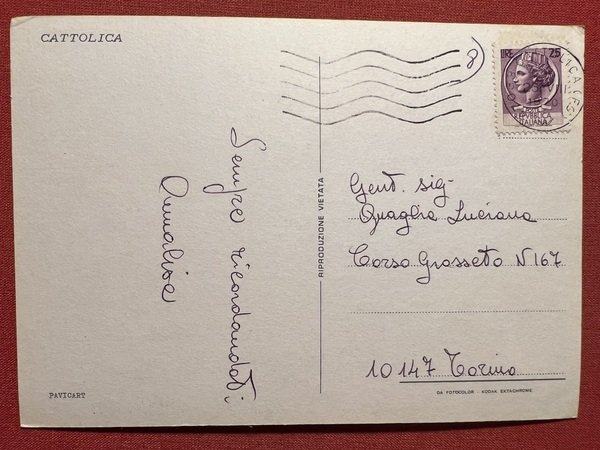 CATTOLICA
LIRE 25
REPUBBLICA
ITALIANA
8
Sempre ricordandoti
Annalisa
RIPRODUZIONE VIETATA
Gent. sig.
Quaglia Luciana
Corso Grosseto N 167
10147 Torino
PAVICART
DA FOTOCOLOR - KODAK EXTACHROME